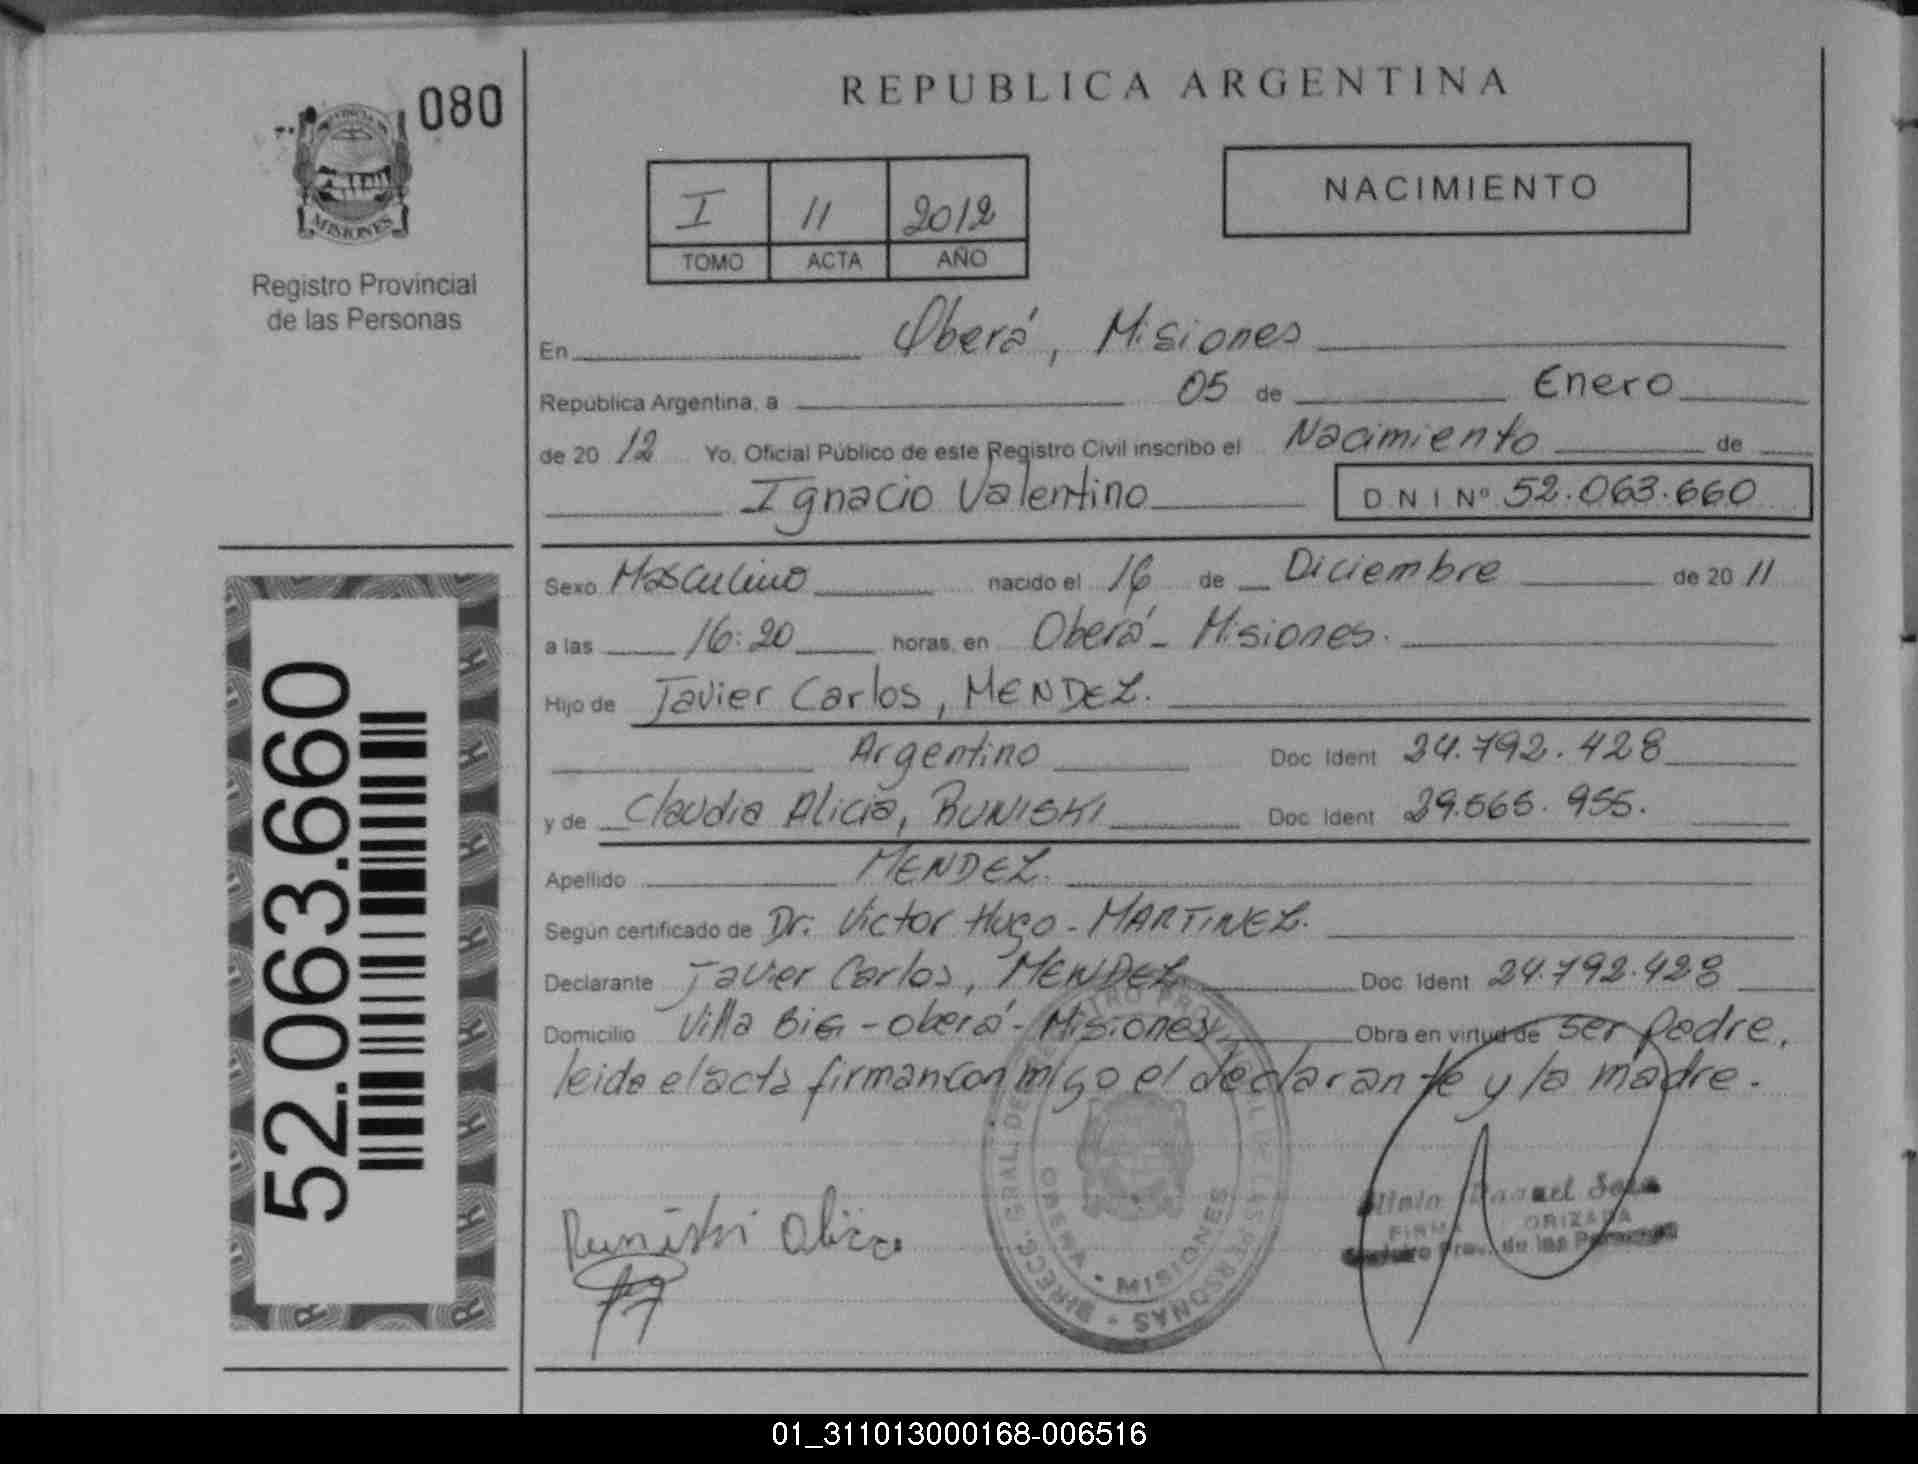 080
MISIONES
Registro Provincial
de las Personas
52.063.660
REPUBLICA ARGENTINA
I 11 2012
TOMO ACTA AÑO
NACIMIENTO
En Oberá, Misiones
República Argentina, a 05 de Enero
de 2012 Yo, Oficial Público de este Registro Civil inscribo el Nacimiento de
Ignacio Valentino DNI Nº 52.063.660
Sexo Masculino nacido el 16 de Diciembre de 2011
a las 16:20 horas, en Oberá - Misiones.
Hijo de Javier Carlos, MENDEZ.
Argentino Doc Ident 24.792.428
y de Claudia Alicia, RUNISKI Doc Ident 29.565.955.
Apellido MENDEZ.
Según certificado de Dr. Victor Hugo - MARTINEZ.
Declarante Javier Carlos, MENDEZ Doc Ident 24.792.428
Domicilio Villa Big - Oberá - Misiones Obra en virtud de ser padre,
leida el acta firman conmigo el declarante y la madre.
Runiski Alicia
DIRECC. GRAL. DE REGISTRO PROVINCIAL DE LAS PERSONAS
OBERA • MISIONES
Sosa
FIRMA AUTORIZADA
Prov. de las Personas
01_311013000168-006516